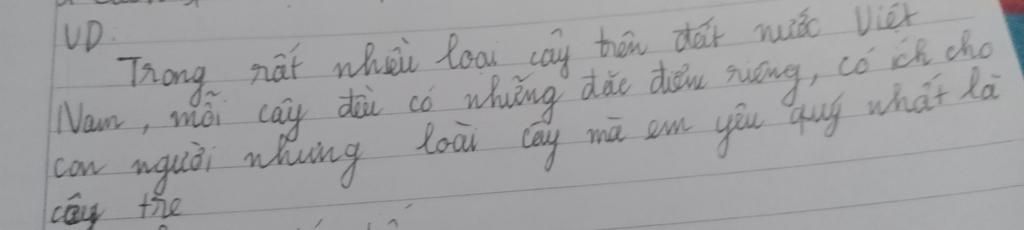 VD:
Trong rất nhiều loại cây trên đất nước Việt
Nam, mỗi cây đều có những đặc điểm riêng, có ích cho
con người nhưng loài cây mà em yêu quý nhất là
cây tre